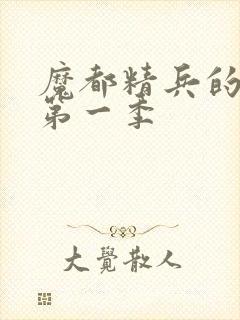 魔都精兵的
第一季
大覺散人